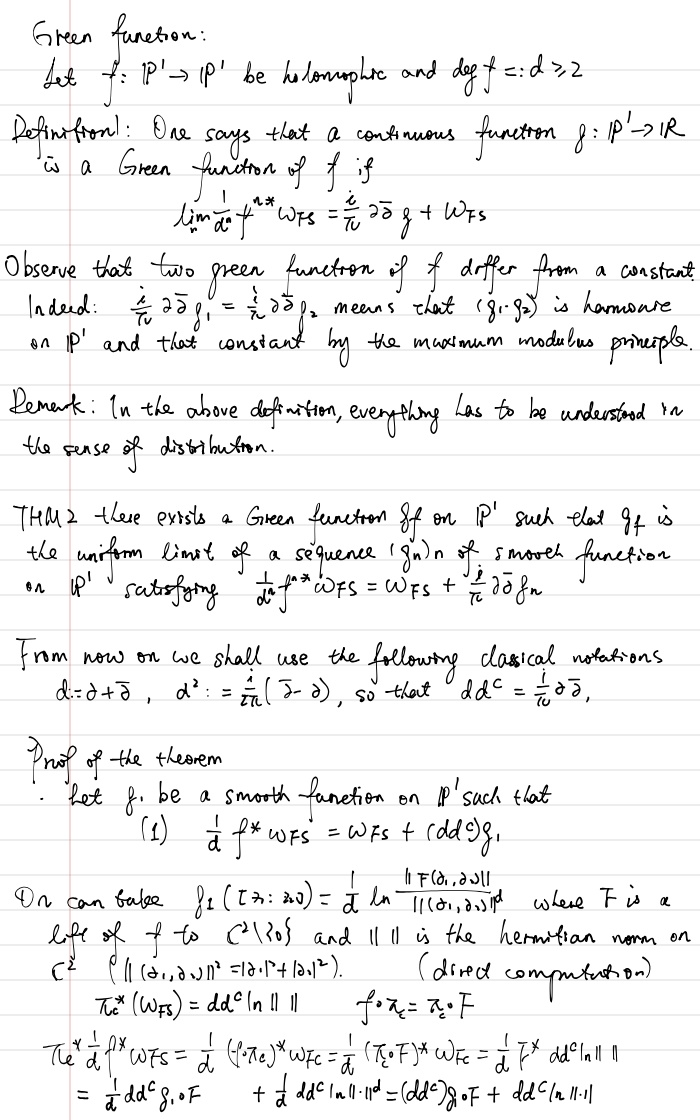 Green function:
Let f: P¹ → P¹ be holomophic and deg f =: d ⩾ 2
Definition 1: One says that a continuous function g: P¹ → IR
is a Green function of f if
lim_n 1/dⁿ f^{n*} ω_FS = i/π ∂∂̄ g + ω_FS
Observe that two green function of f differ from a constant.
Indeed: i/π ∂∂̄ g₁ = i/π ∂∂̄ g₂ means that (g₁-g₂) is harmonic
on P¹ and that constant by the maximum modulus principle.
Remark: In the above definition, everything has to be understood in
the sense of distribution.
THM 2 there exists a Green function g_f on P¹ such that g_f is
the uniform limit of a sequence (g_n)_n of smooth function
on P¹ satisfying 1/dⁿ f^{n*} ω_FS = ω_FS + i/π ∂∂̄ g_n
From now on we shall use the following classical notations
d := ∂+∂̄, d² := i/2π (∂̄-∂), so that dd^c = i/π ∂∂̄,
Proof of the theorem
· Let g₁ be a smooth function on P¹ such that
(1) 1/d f* ω_FS = ω_FS + (dd^c) g₁
On can take g₁([z₁:z₂]) = 1/d ln ||F(z₁,z₂)|| / ||(z₁,z₂)||^d where F is a
lift of f to C²\{0} and || || is the hermitian norm on
C² (||(z₁,z₂)||² = |z₁|²+|z₂|²). (direct computation)
π_c*(ω_FS) = dd^c ln || || f∘π_c = π_c∘F
π_c* 1/d f* ω_FS = 1/d (f∘π_c)* ω_FS = 1/d (π_c∘F)* ω_FS = 1/d F* dd^c ln || ||
= 1/d dd^c g₁∘F + 1/d dd^c ln ||·||^d = (dd^c) g₁∘F + dd^c ln ||·||